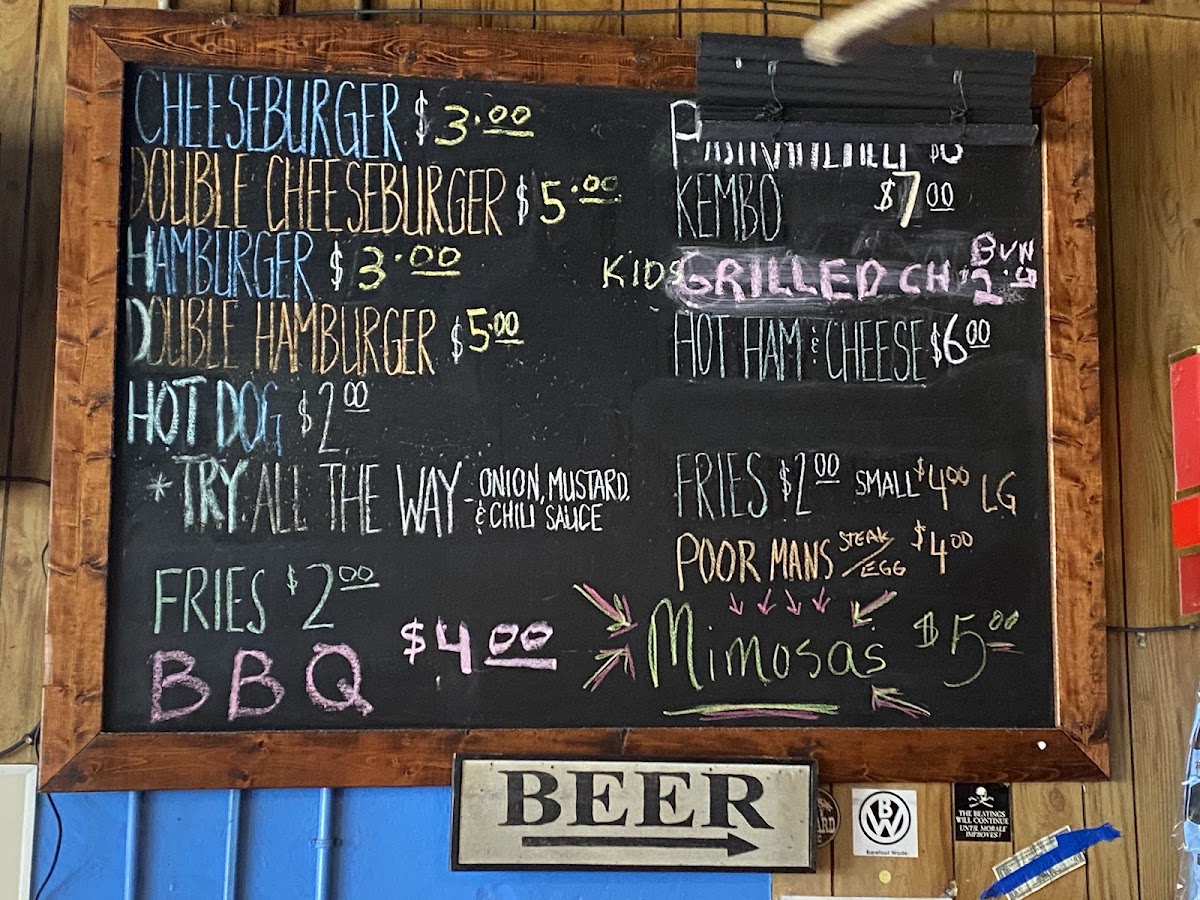 CHEESEBURGER $3.00
DOUBLE CHEESEBURGER $5.00
HAMBURGER $3.00
DOUBLE HAMBURGER $5.00
HOT DOG $2.00
*TRY ALL THE WAY - ONION, MUSTARD,
& CHILI SAUCE
FRIES $2.00
BBQ $4.00
KEMBO $7.00
KIDS GRILLED CH BUN
HOT HAM & CHEESE $6.00
FRIES $2.00 SMALL $4.00 LG
POOR MANS STEAK/EGG $4.00
Mimosas $5.00
BEER
BW
Barefoot Wade
THE BEATINGS
WILL CONTINUE
UNTIL MORALE
IMPROVES!